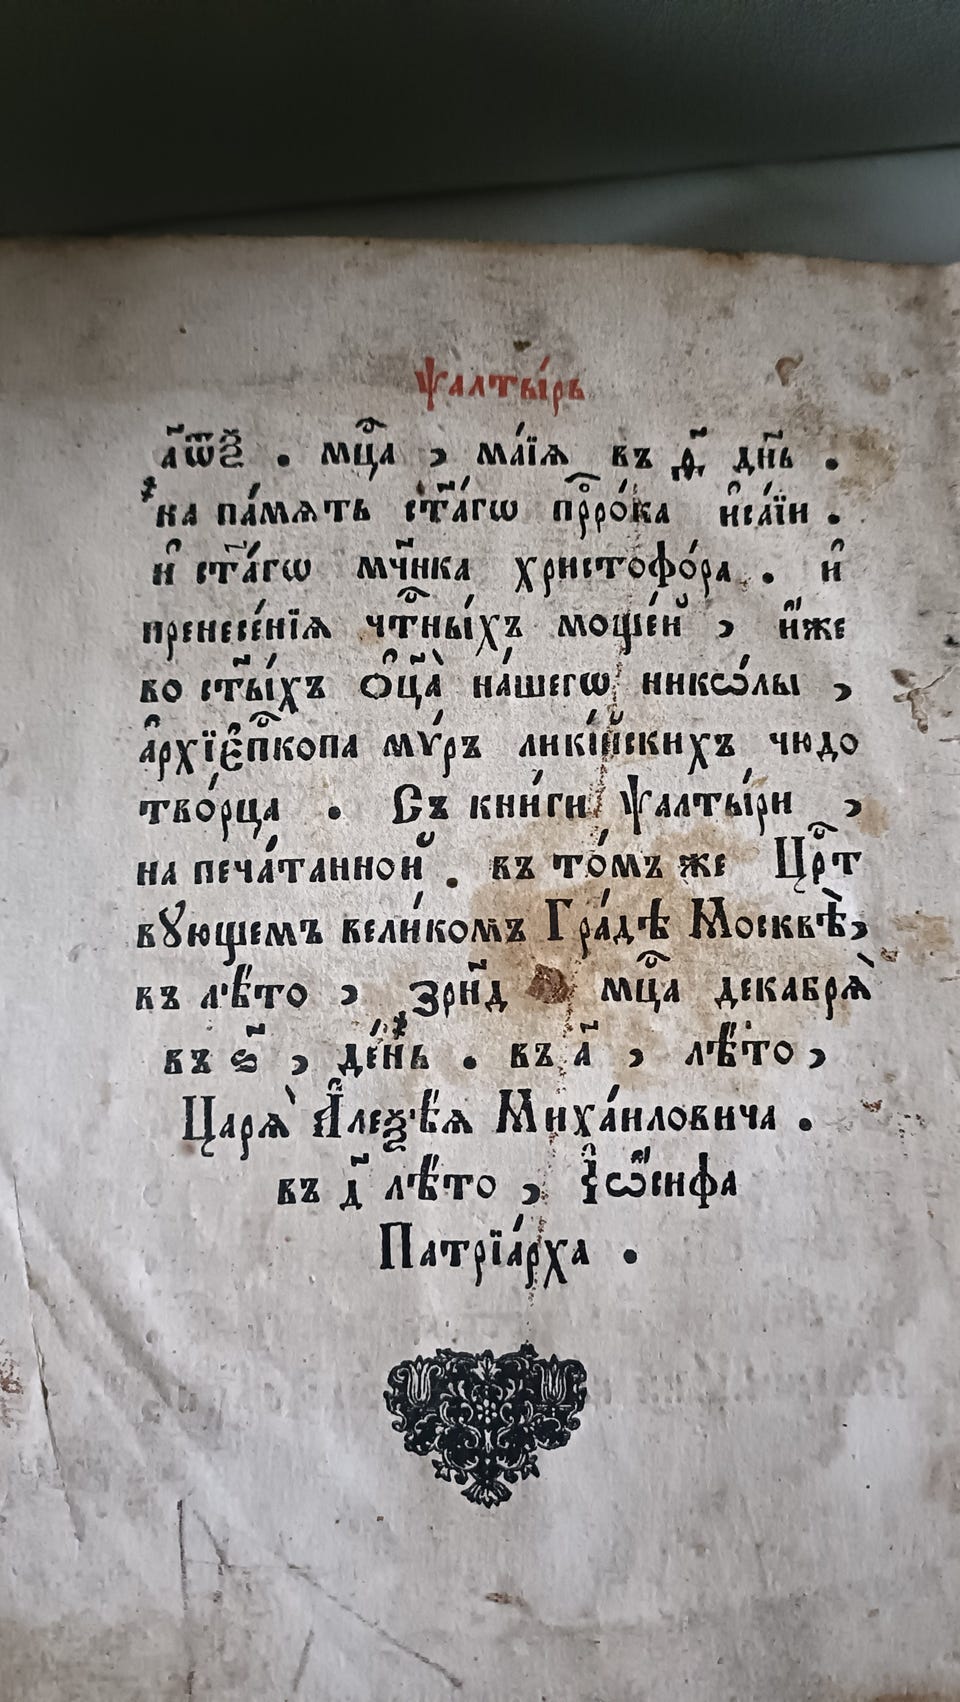 Ѱалты́рь
а҃ѿѯ . мцⷭ҇а , ма́їѧ въ д҃ дн҃ь .
на па́мѧть ст҃а́гѡ прⷪ҇ро́ка и҆са́їи .
и҆ ст҃а́гѡ мч҃нка христофо́ра . и҆
пренесе́нїѧ чтⷭ҇ны́хъ моще́й , и҆́же
во ст҃ы́хъ ѻ҆ц҃а̀ на́шегѡ нико́лы ,
а҆рхїе҆пⷭ҇копа мѵ́ръ лики́йскихъ чюдо
тво́рца . Съ кни́ги ѱалты́ри ,
на печа́танной . въ то́мъ же Црⷭ҇т
вꙋющемъ вели́комъ Гра́дѣ Москвѣ̀,
въ лѣ́то , зрн҃д мцⷭ҇а декабрѧ̀
въ ѕ҃ , де́нь . въ а҃ , лѣ́то ,
Царѧ̀ А҆леѯѣ́ѧ Миха́иловича .
въ д҃ лѣ́то , І҆ѡ́сифа
Патрїа́рха .